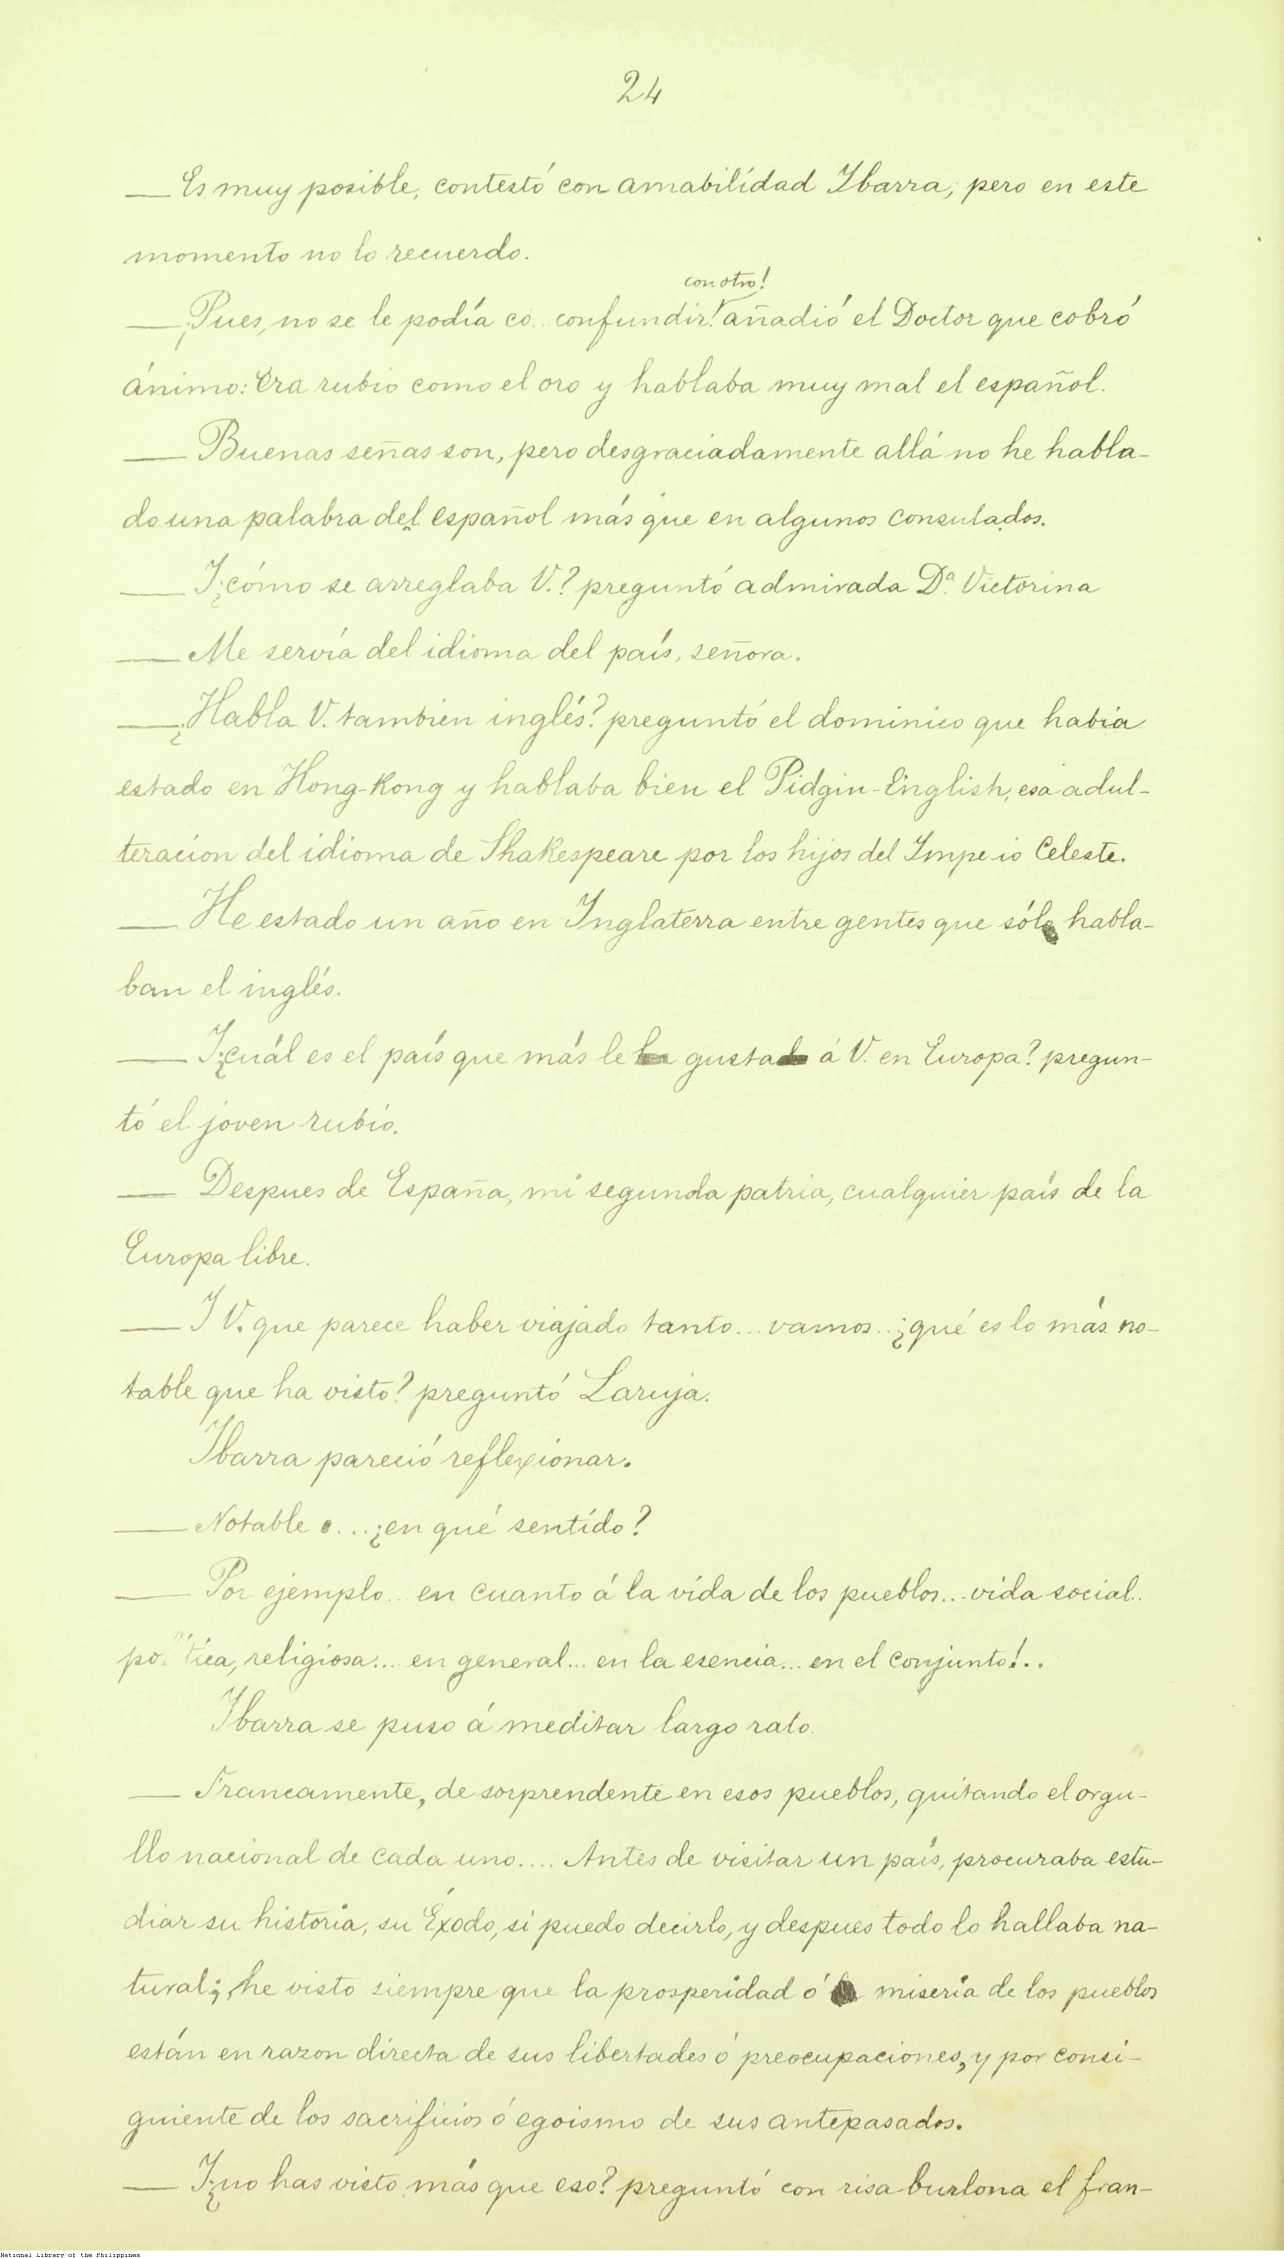 24
— Es muy posible, contestó con amabilidad Ibarra; pero en este
momento no lo recuerdo.
con otro!
— ¡Pues, no se le podía co.. confundir! añadió el Doctor que cobró
ánimo: Era rubio como el oro y hablaba muy mal el español.
— Buenas señas son, pero desgraciadamente allá no he habla-
do una palabra del español más que en algunos consulados.
— I ¿cómo se arreglaba V.? preguntó admirada Dª Victorina
— Me servía del idioma del país, señora.
— ¿Habla V. tambien inglés? preguntó el dominico que había
estado en Hong-Kong y hablaba bien el Pidgin-English, esa adul-
teracion del idioma de Shakespeare por los hijos del Impe io Celeste.
— He estado un año en Inglaterra entre gentes que sólo habla-
ban el inglés.
— I ¿cuál es el país que más le gusta á V. en Europa? pregun-
tó el joven rubio.
— Despues de España, mi segunda patria, cualquier país de la
Europa libre.
— I V. que parece haber viajado tanto... vamos.. ¿qué es lo más no-
table que ha visto? preguntó Laruja.
Ibarra pareció reflexionar.
— Notable .... ¿en qué sentido?
— Por ejemplo... en cuanto á la vida de los pueblos... vida social..
po..tica, religiosa... en general... en la esencia... en el conjunto!..
Ibarra se puso á meditar largo rato.
— Francamente, de sorprendente en esos pueblos, quitando el orgu-
llo nacional de cada uno.... Antes de visitar un país, procuraba estu-
diar su historia, su Éxodo, si puedo decirlo, y despues todo lo hallaba na-
tural; he visto siempre que la prosperidad ó miseria de los pueblos
están en razon directa de sus libertades ó preocupaciones, y por consi-
guiente de los sacrificios ó egoismo de sus antepasados.
— I ¿no has visto más que eso? preguntó con risa burlona el fran-
National Library of the Philippines